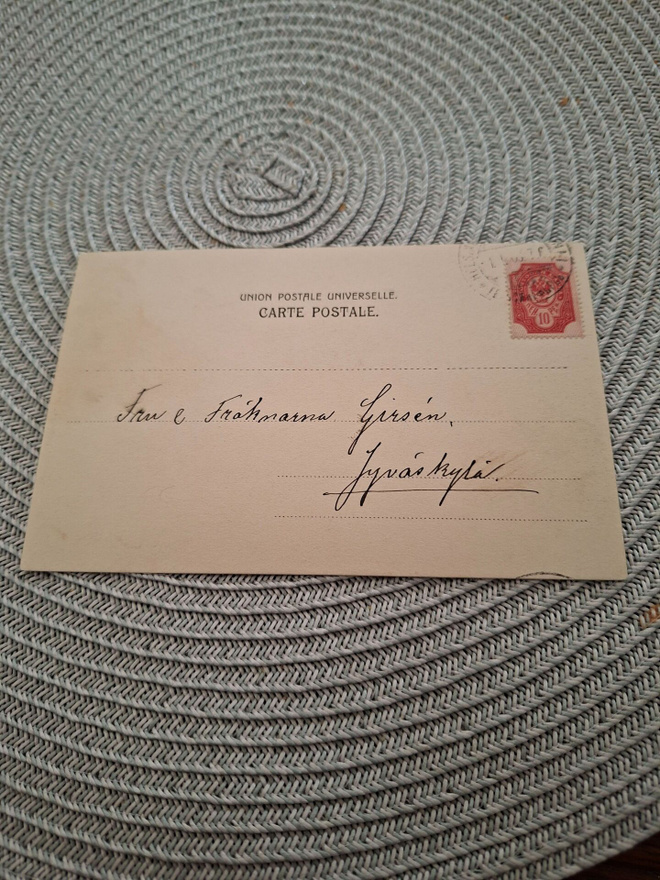 UNION POSTALE UNIVERSELLE.
CARTE POSTALE.
10
Fru & Fröknarna Girsén,
Jyväskylä.